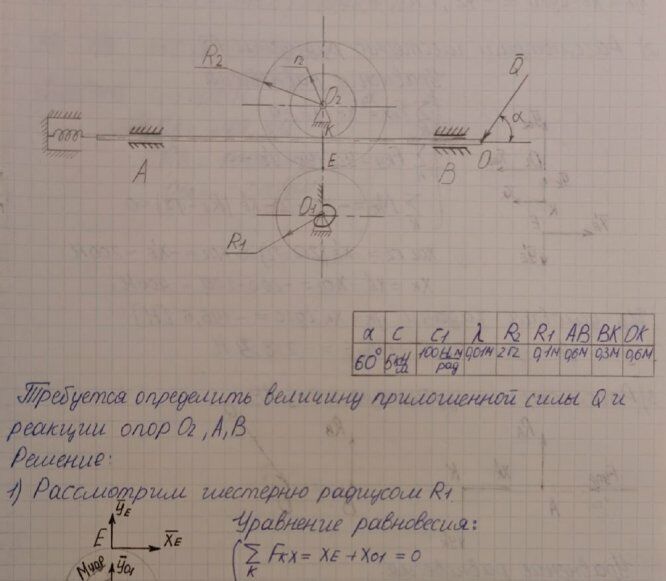 R₂ r₂ O₂ Q̄
α
K
A B O
E
O₁
R₁
α C C₁ λ R₂ R₁ AB BK OK
60° 5 кН/м 100 Н·м/рад 0,01м 2r₂ 0,1м 0,6м 0,3м 0,6м
Требуется определить величину приложенной силы Q и
реакции опор O₂, A, B
Решение:
1) Рассмотрим шестерню радиусом R₁.
ȲE
E X̄E Уравнение равновесия:
Mупр Ȳ01 ∑K FKX = XE + X01 = 0